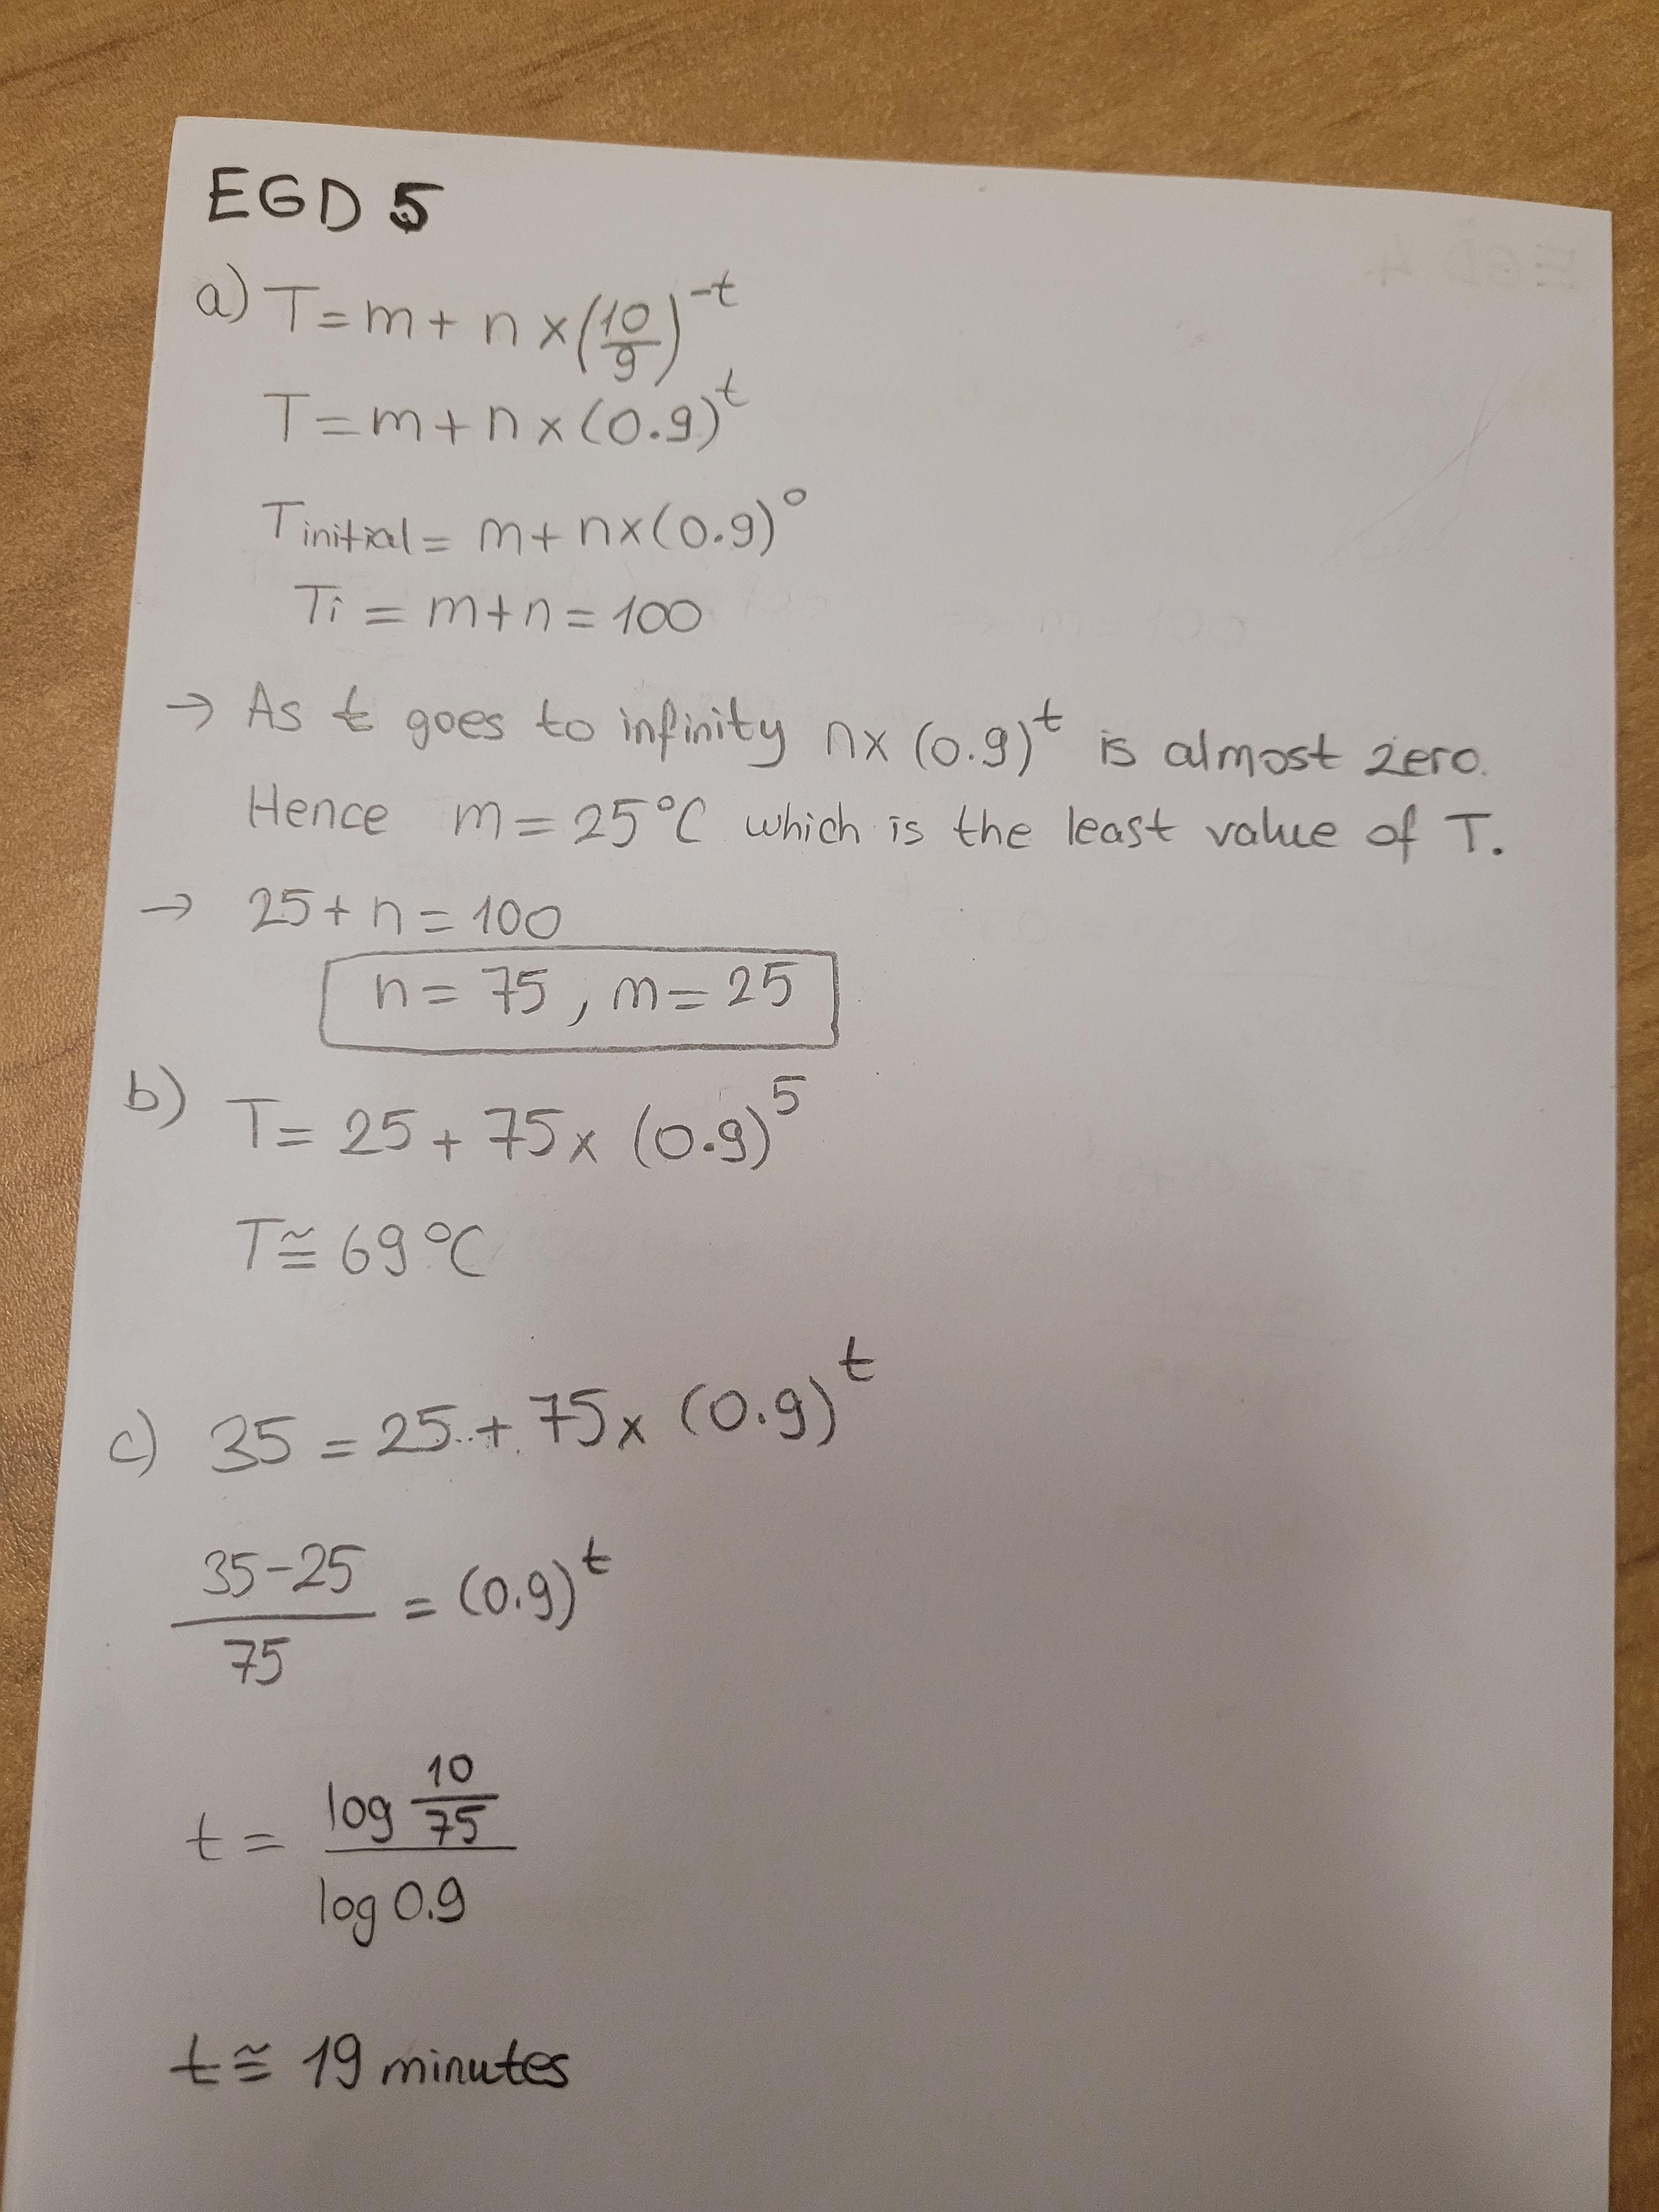 EGD 5
a) T = m + n × (10/9)^-t
T = m + n × (0.9)^t
Tinitial = m + n × (0.9)^0
Ti = m + n = 100
→ As t goes to infinity n × (0.9)^t is almost zero.
Hence m = 25°C which is the least value of T.
→ 25 + n = 100
n = 75, m = 25
b) T = 25 + 75 × (0.9)^5
T ≅ 69°C
c) 35 = 25 + 75 × (0.9)^t
35-25/75 = (0.9)^t
t = log 10/75 / log 0.9
t ≅ 19 minutes
EGD 4